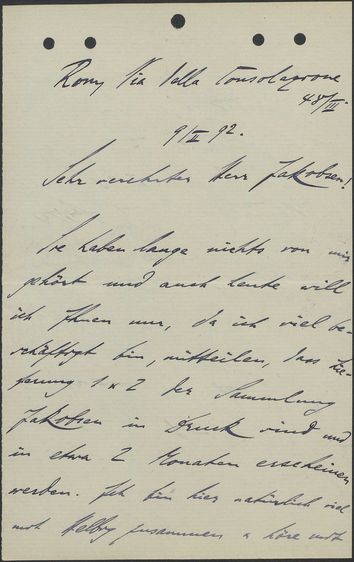 Rom, Via della Consolazione
48/III.
9/II 92.
Sehr verehrter Herr Jakobsen!
Sie haben lange nichts von mir
gehört und auch heute will
ich Ihnen nur, da ich viel be-
schäftigt bin, mitteilen, dass Lie-
ferung 1 u 2 der Sammlung
Jakobsen in Druck sind und
in etwa 2 Monaten erscheinen
werden. Ich bin hier natürlich viel
mit Helbig zusammen u höre mit